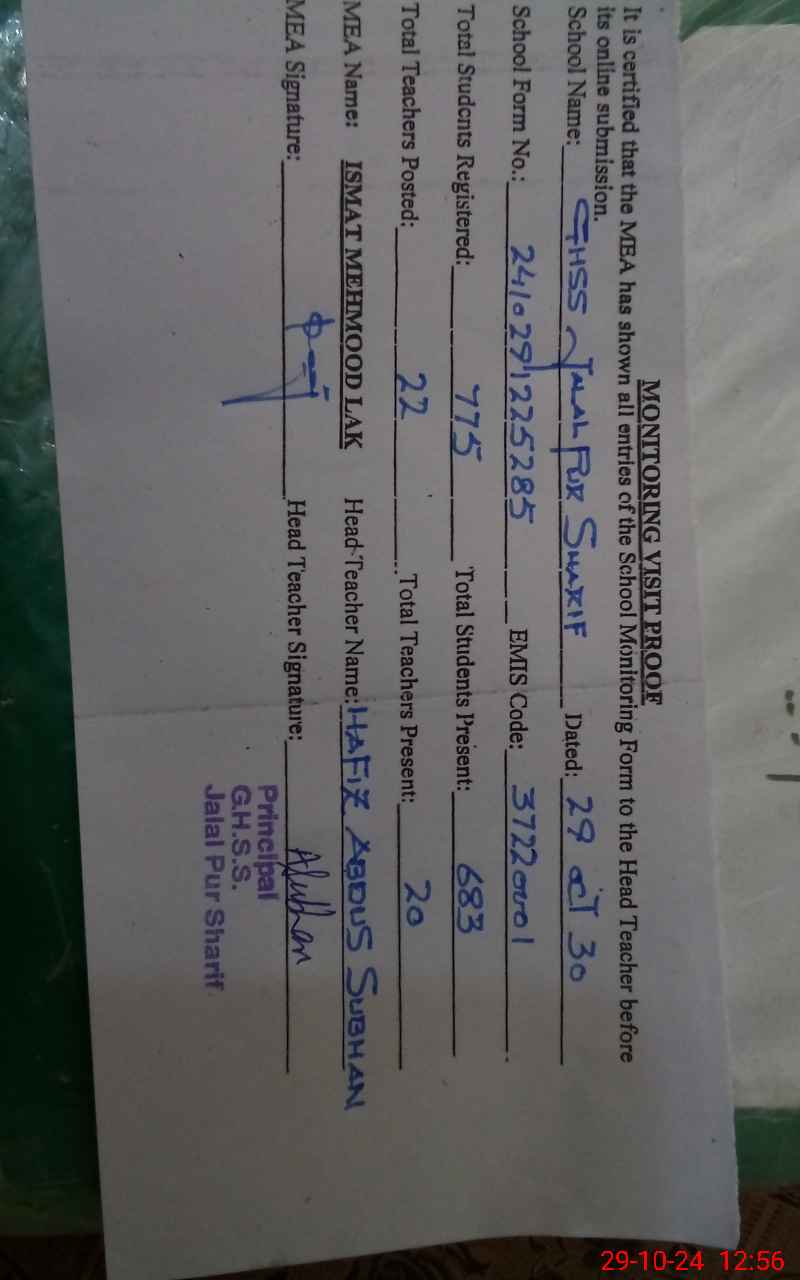 MONITORING VISIT PROOF
It is certified that the MEA has shown all entries of the School Monitoring Form to the Head Teacher before
its online submission.
School Name: GHSS JALAL PUR SHARIF Dated: 29 OCT 30
School Form No.: 2410291225285 EMIS Code: 37220001
Total Students Registered: 775 Total Students Present: 683
Total Teachers Posted: 22 Total Teachers Present: 20
MEA Name: ISMAT MEHMOOD LAK Head Teacher Name: HAFIZ ABDUS SUBHAN
MEA Signature: Head Teacher Signature: ASubhan
Principal
G.H.S.S.
Jalal Pur Sharif
29-10-24 12:56